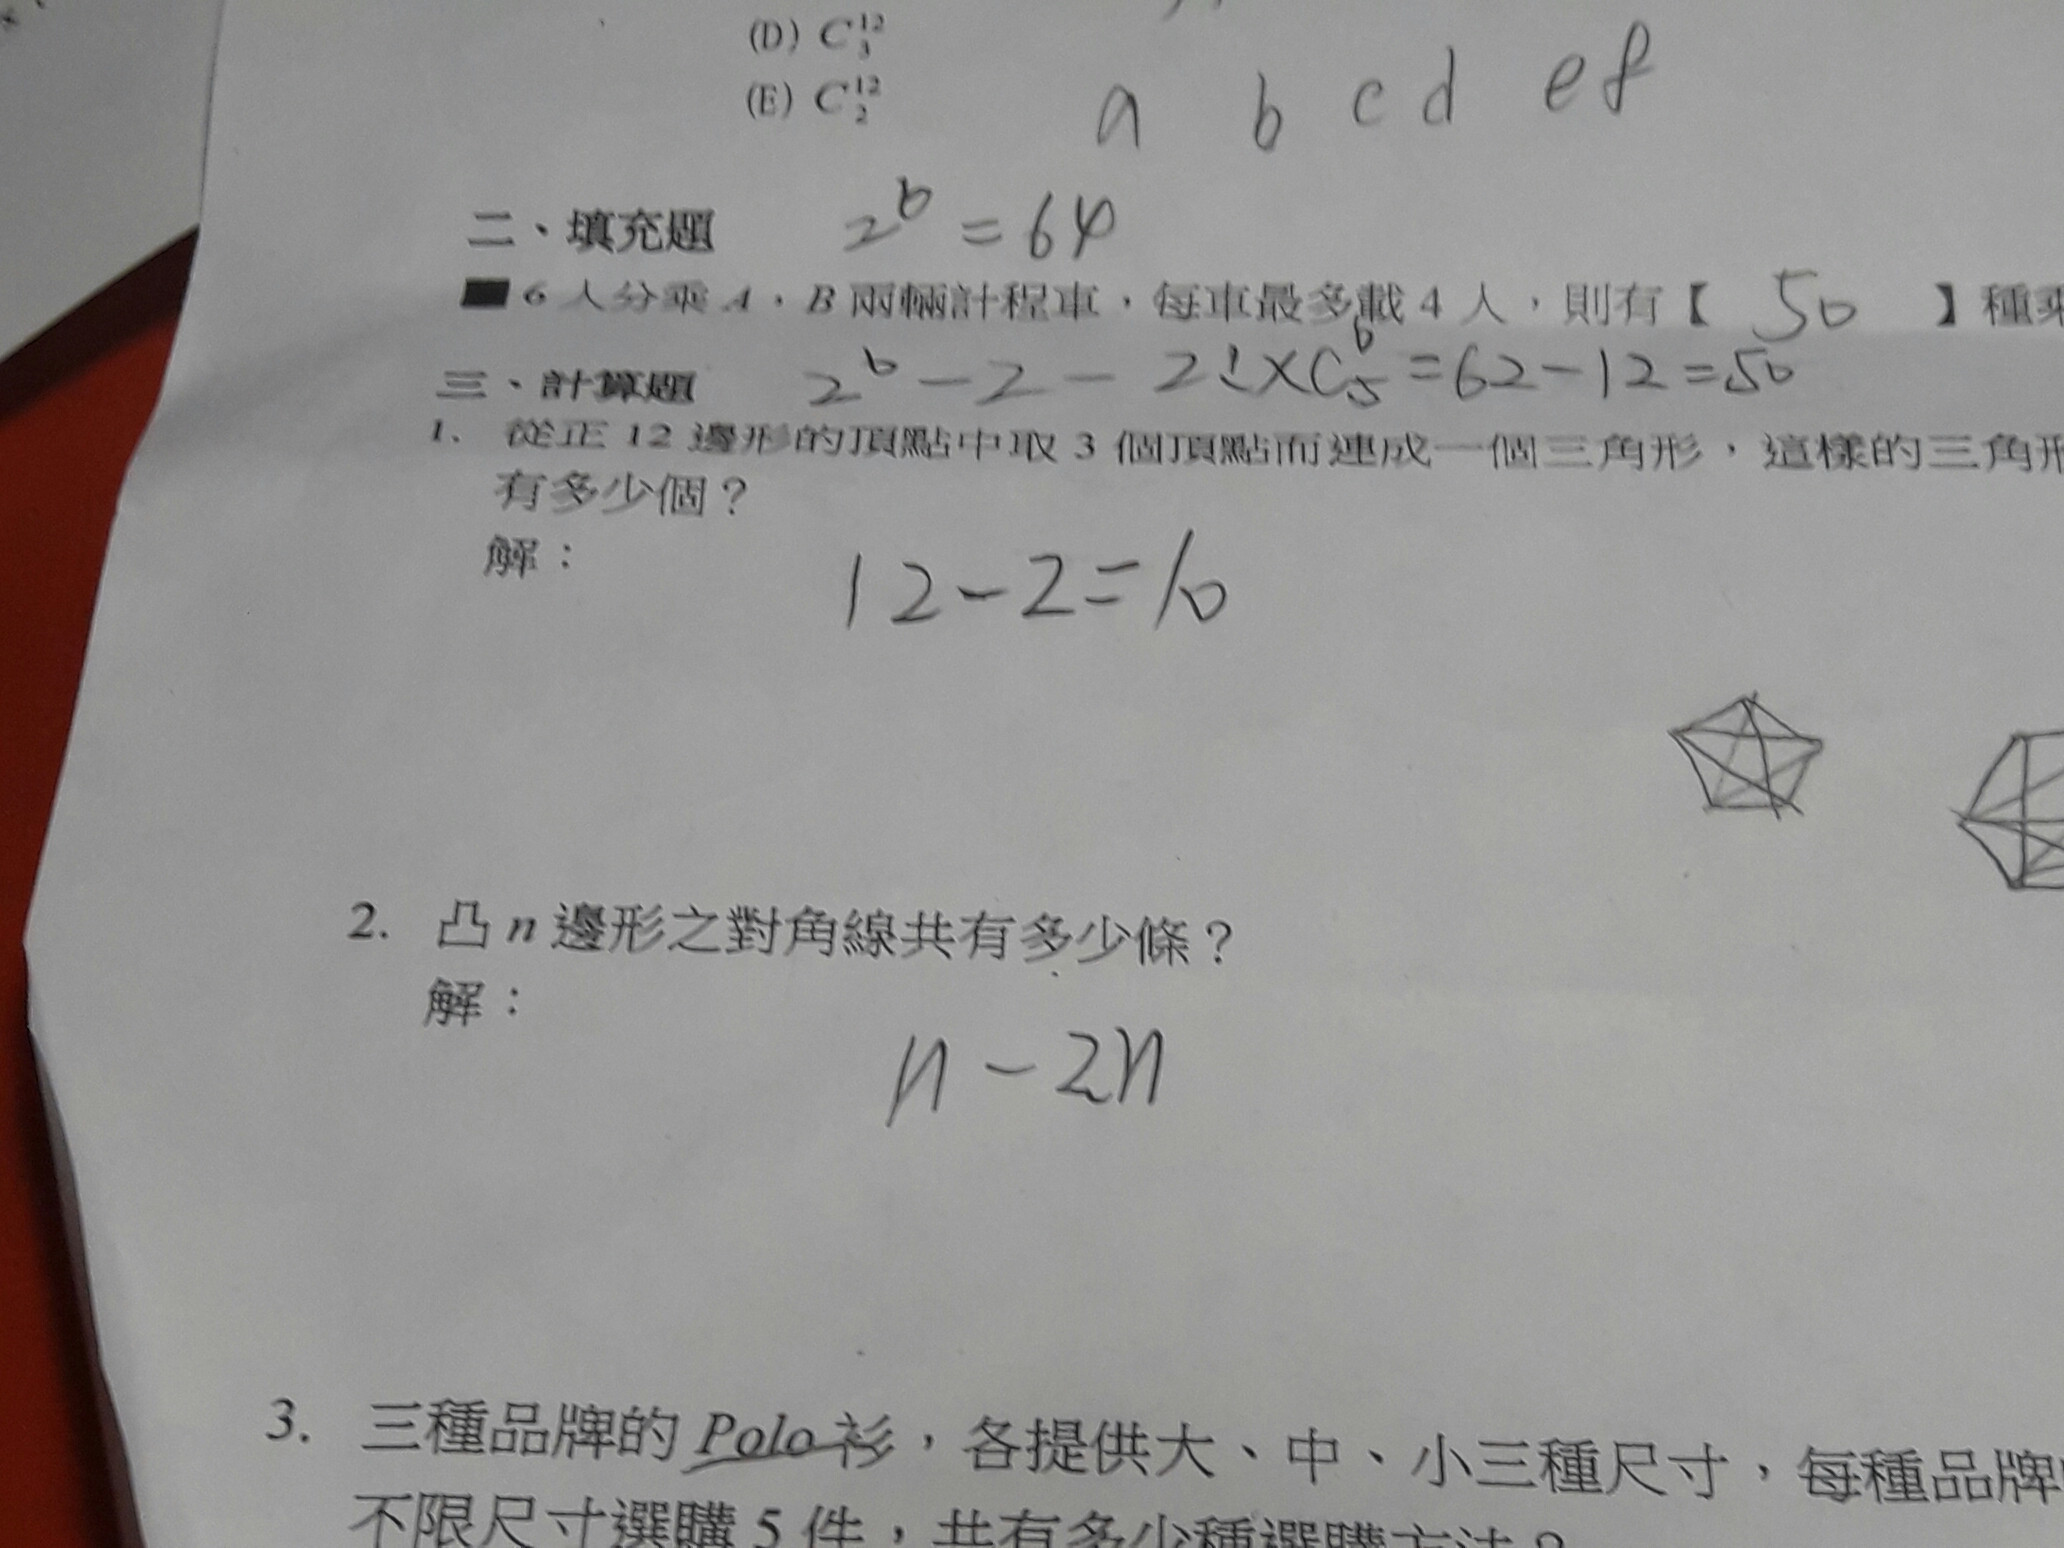 (D) C¹²₃
(E) C¹²₂
a b c d e f
二、填充題 2⁶ = 64
6 人分乘 A、B 兩輛計程車,每車最多載 4 人,則有【 50 】種乘
三、計算題 2⁶ - 2 - 2! × C⁶₅ = 62 - 12 = 50
1. 從正 12 邊形的頂點中取 3 個頂點而連成一個三角形,這樣的三角形
有多少個?
解:
12 - 2 = 10
2. 凸 n 邊形之對角線共有多少條?
解:
n - 2n
3. 三種品牌的 Polo 衫,各提供大、中、小三種尺寸,每種品牌
不限尺寸選購 5 件,共有多少種選購方法?